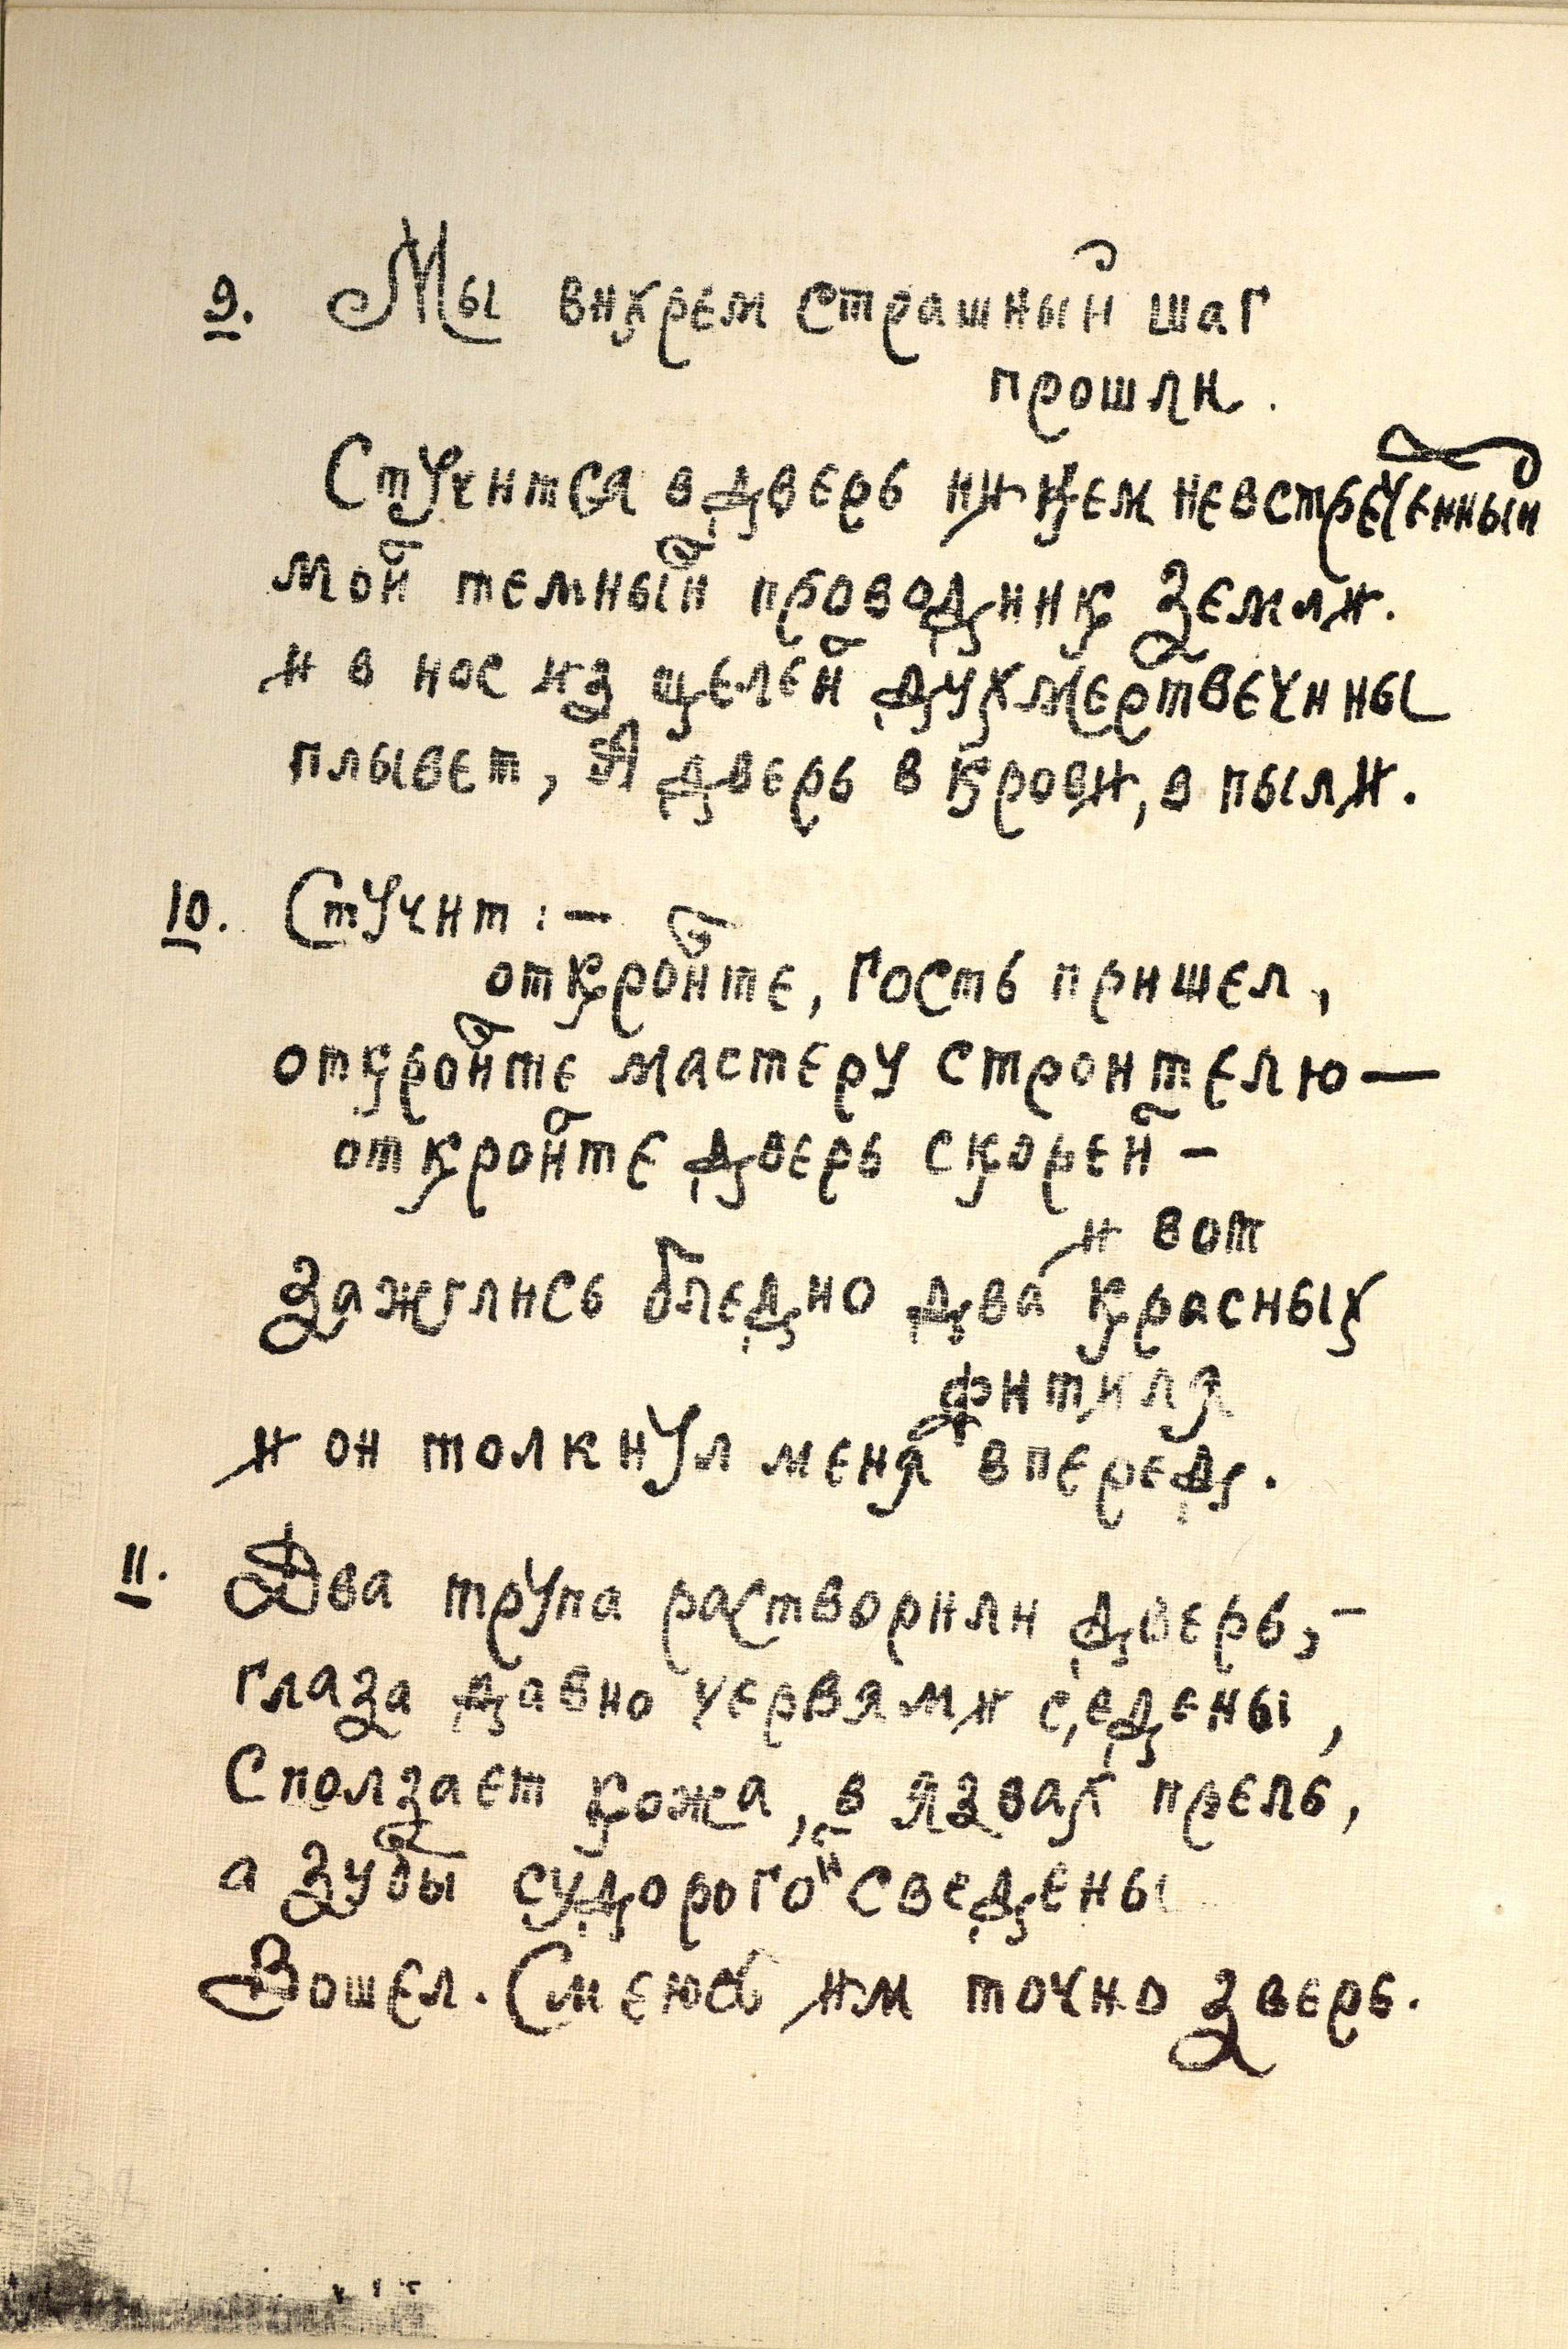 9. Мы вихрем страшный шаг
прошли.
Стучится в дверь ни кем невстреченный
мой темный проводник земли.
и в нос из щелей дух мертвечины
плывет, А дверь в крови, в пыли.
10. Стучит: —
откройте, гость пришел,
откройте мастеру строителю —
откройте дверь скорей —
и вот
зажглись бледно два красных
фитиля
и он толкнул меня вперед.
11. Два трупа растворили дверь, —
глаза давно червями с,едены,
Сползает кожа, в язвах прель,
а зубы судорогой сведены
Вошел. Смеюсь им точно зверь.